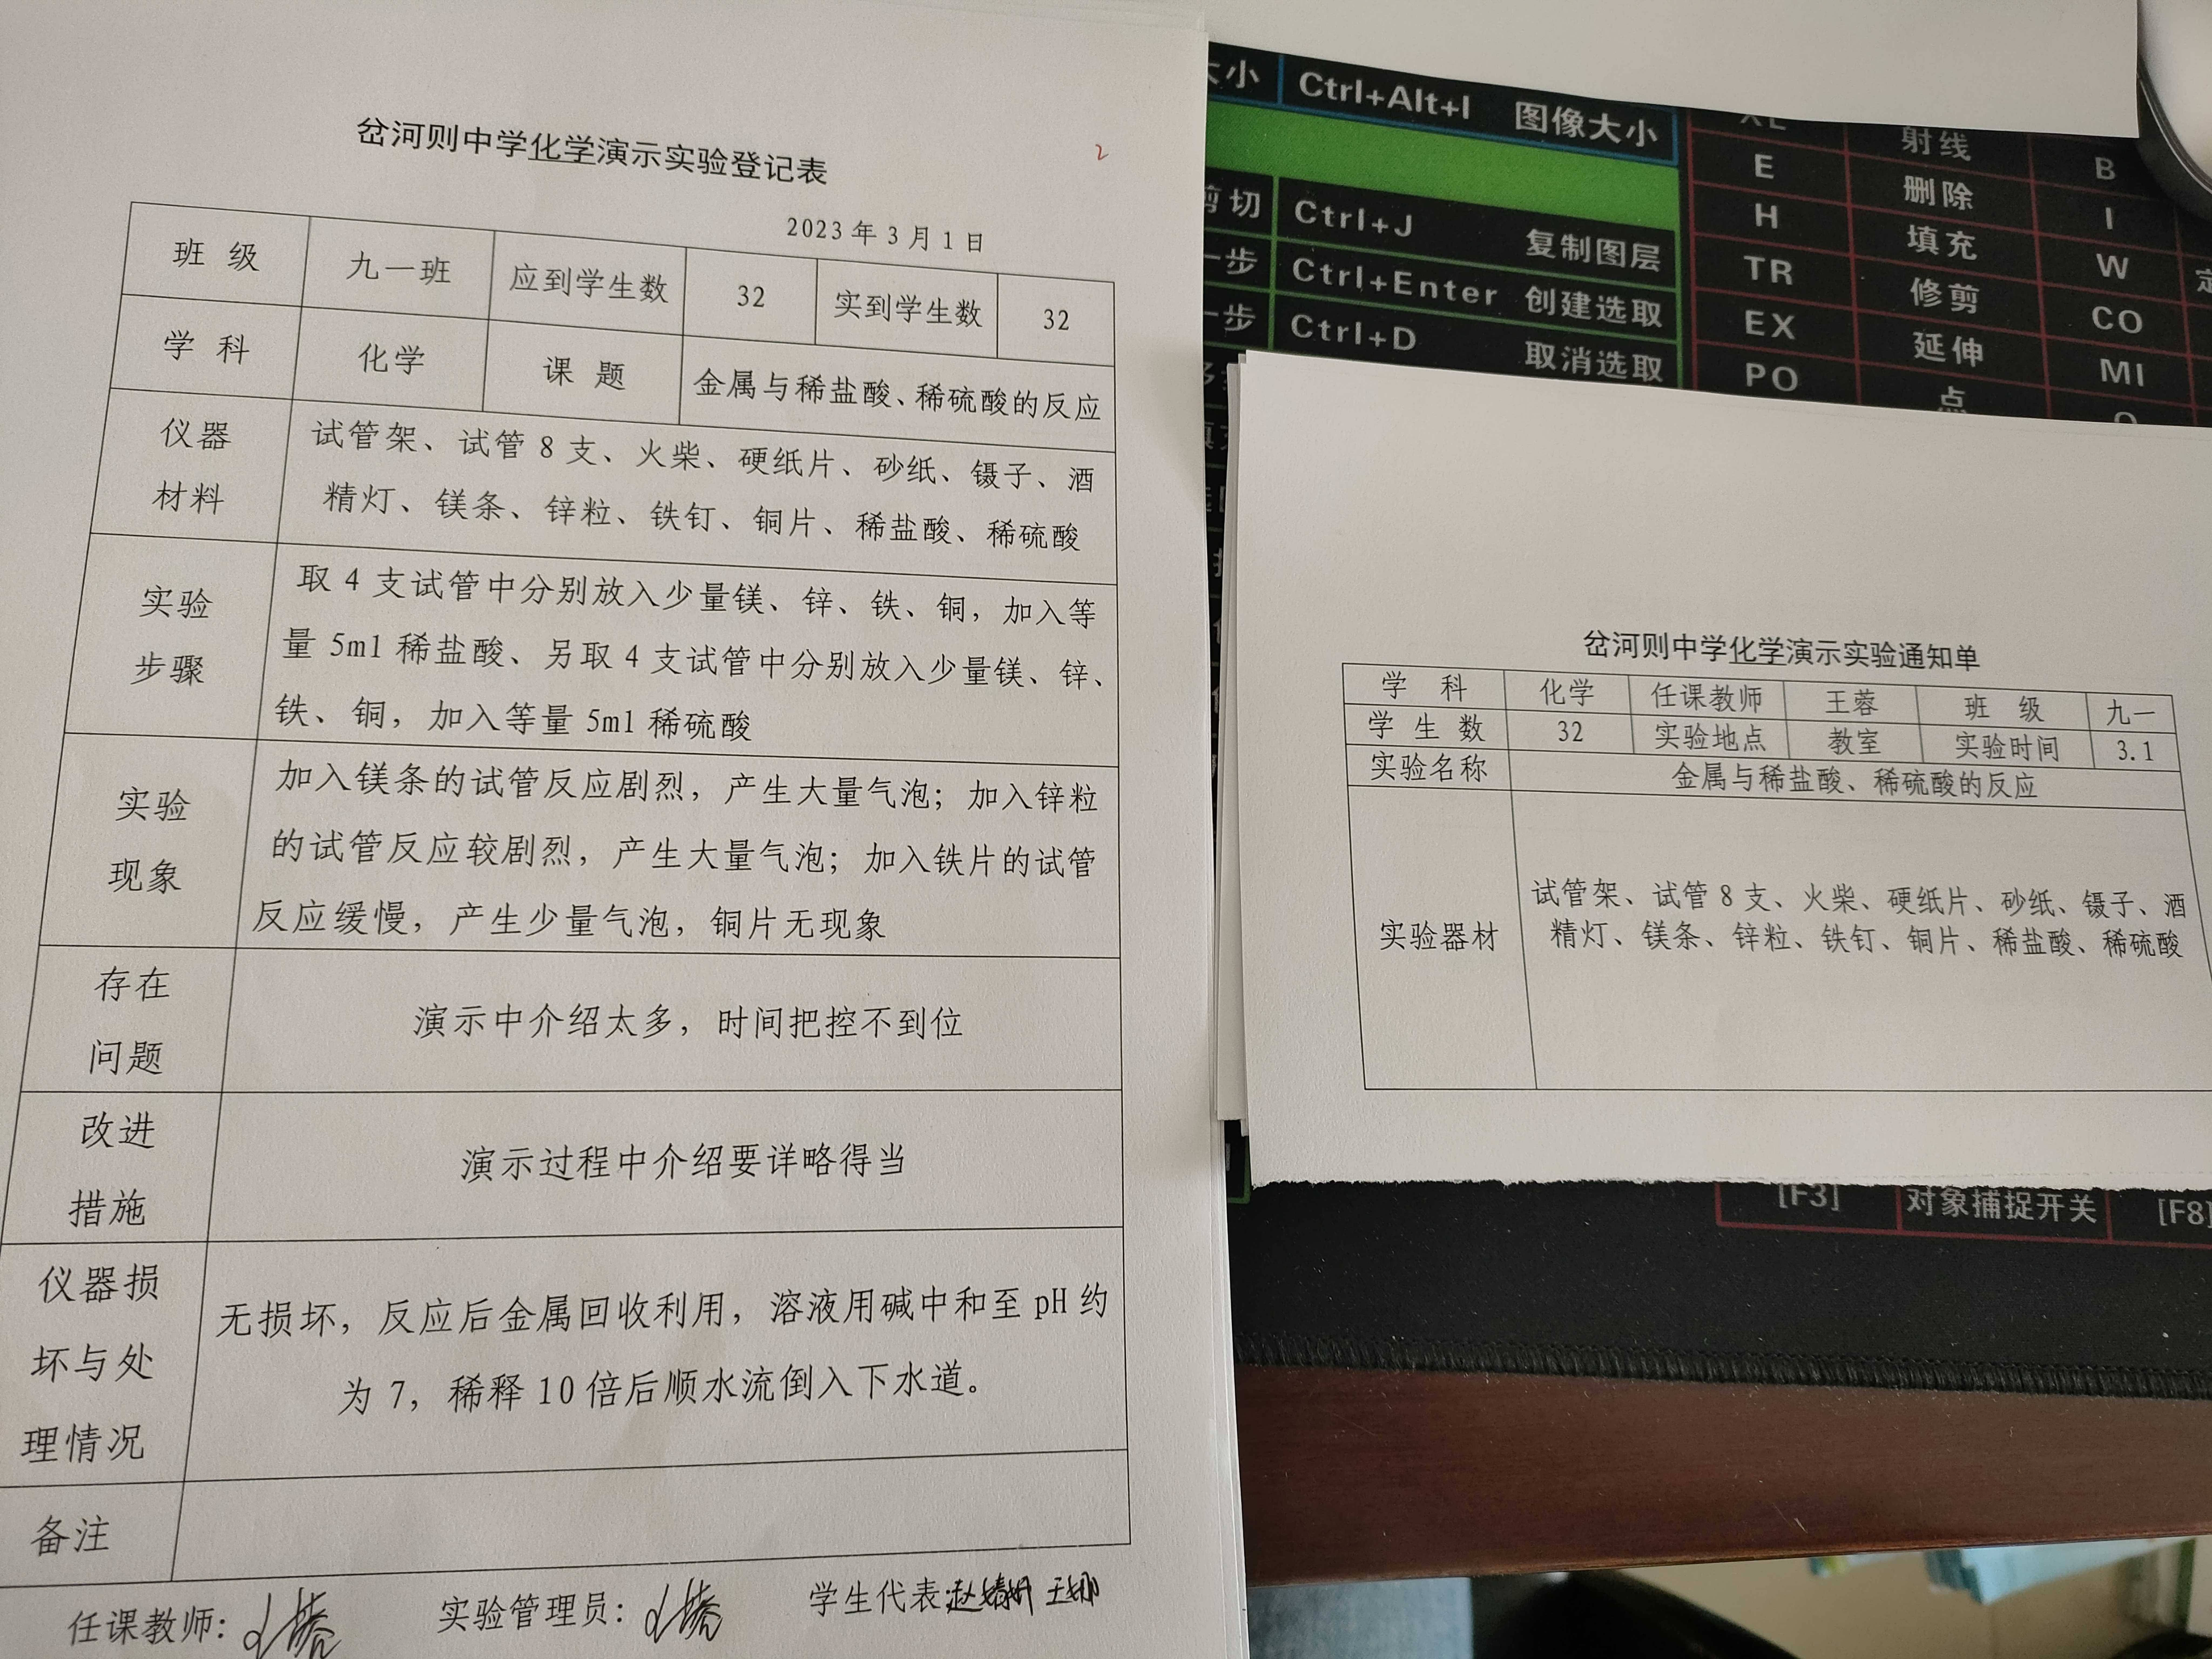 岔河则中学化学演示实验登记表
2
2023年3月1日
班 级 九一班 应到学生数 32 实到学生数 32
学 科 化学 课 题 金属与稀盐酸、稀硫酸的反应
仪器
材料
试管架、试管8支、火柴、硬纸片、砂纸、镊子、酒
精灯、镁条、锌粒、铁钉、铜片、稀盐酸、稀硫酸
实验
步骤
取4支试管中分别放入少量镁、锌、铁、铜，加入等
量5ml稀盐酸、另取4支试管中分别放入少量镁、锌、
铁、铜，加入等量5ml稀硫酸
实验
现象
加入镁条的试管反应剧烈，产生大量气泡；加入锌粒
的试管反应较剧烈，产生大量气泡；加入铁片的试管
反应缓慢，产生少量气泡，铜片无现象
存在
问题
演示中介绍太多，时间把控不到位
改进
措施
演示过程中介绍要详略得当
仪器损
坏与处
理情况
无损坏，反应后金属回收利用，溶液用碱中和至pH约
为7，稀释10倍后顺水流倒入下水道。
备注
任课教师：
实验管理员：
学生代表：
岔河则中学化学演示实验通知单
学 科 化学 任课教师 王蓉 班 级 九一
学 生 数 32 实验地点 教室 实验时间 3.1
实验名称 金属与稀盐酸、稀硫酸的反应
实验器材
试管架、试管8支、火柴、硬纸片、砂纸、镊子、酒
精灯、镁条、锌粒、铁钉、铜片、稀盐酸、稀硫酸
大小 Ctrl+Alt+I 图像大小
剪切 Ctrl+J 复制图层
一步 Ctrl+Enter 创建选取
一步 Ctrl+D 取消选取
XL 射线 B
E 删除 I
H 填充 W
TR 修剪 CO
EX 延伸 MI
PO 点
[F3] 对象捕捉开关 [F8]